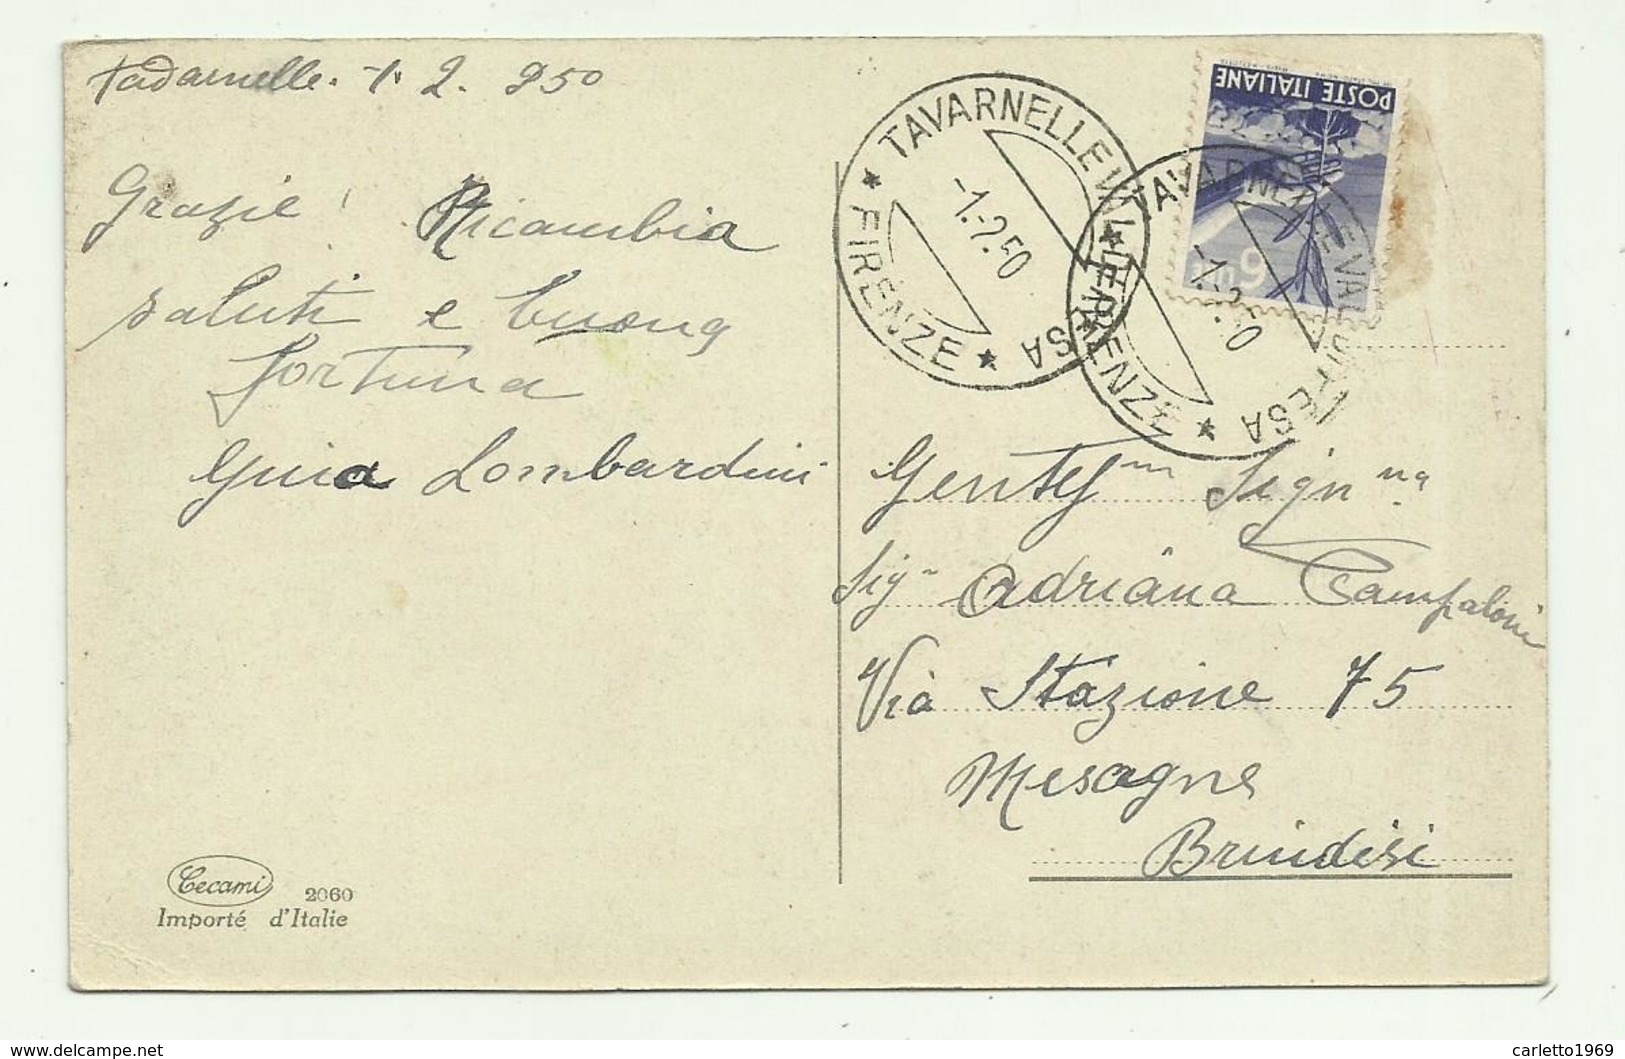 Tavarnelle. 1. 2. 950
Grazie! Ricambia
saluti e buona
fortuna
Guia Lombardini
Cecami
2060
Importé d'Italie
POSTE ITALIANE
6 LIRE
TAVARNELLE VAL DI PESA
-1.-2.50
* FIRENZE *
TAVARNELLE VAL DI PESA
-1.-2.50
* FIRENZE *
Sign na
Sig na Adriana Campaloni
Via Stazione 75
Mesagne
Brindisi
delcampe.net
carletto1969